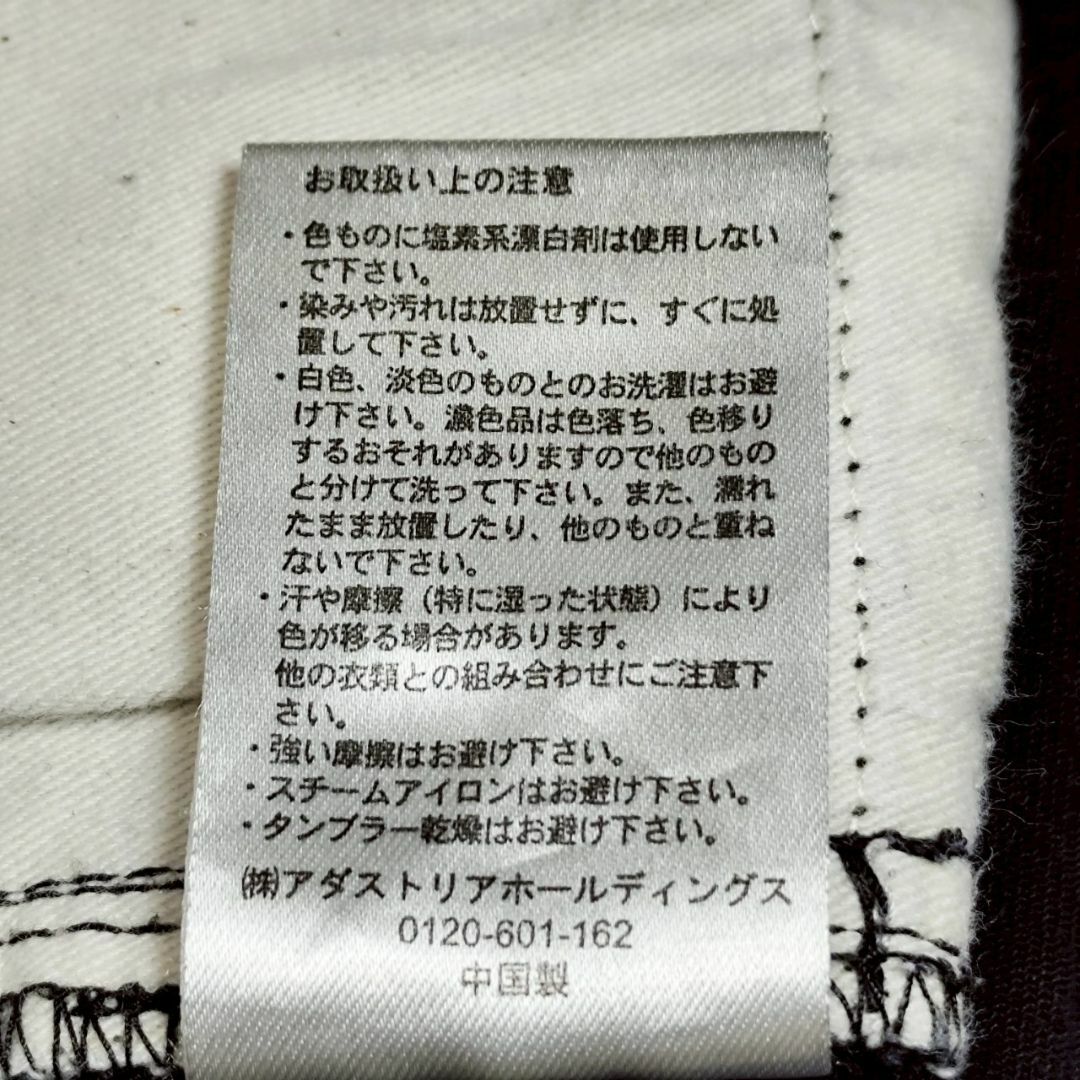 お取扱い上の注意
・色ものに塩素系漂白剤は使用しない
で下さい。
・染みや汚れは放置せずに、すぐに処
置して下さい。
・白色、淡色のものとのお洗濯はお避
け下さい。濃色品は色落ち、色移り
するおそれがありますので他のもの
と分けて洗って下さい。また、濡れ
たまま放置したり、他のものと重ね
ないで下さい。
・汗や摩擦（特に湿った状態）により
色が移る場合があります。
他の衣類との組み合わせにご注意下
さい。
・強い摩擦はお避け下さい。
・スチームアイロンはお避け下さい。
・タンブラー乾燥はお避け下さい。
㈱アダストリアホールディングス
0120-601-162
中国製